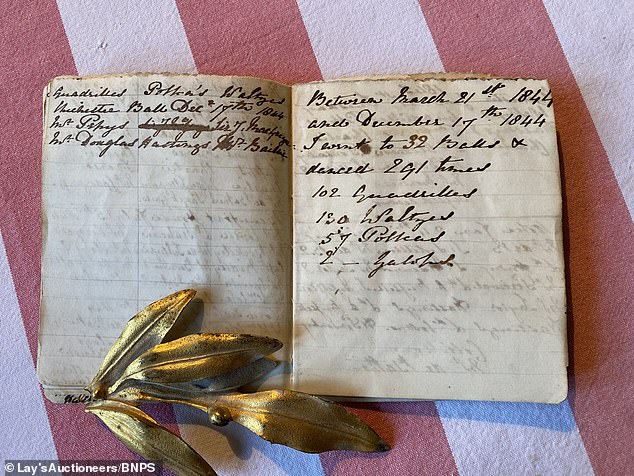 Quadrilles Polka's Waltzes
Chichester Ball Decr 17th 1844
Mr Pepys
Mr Douglas Hastings
Between March 21st 1844
and December 17th 1844
I went to 32 Balls &
danced 291 times
102 Quadrilles
130 Waltzes
57 Polkas
2 — Galops
© Lay'sAuctioneers/BNPS